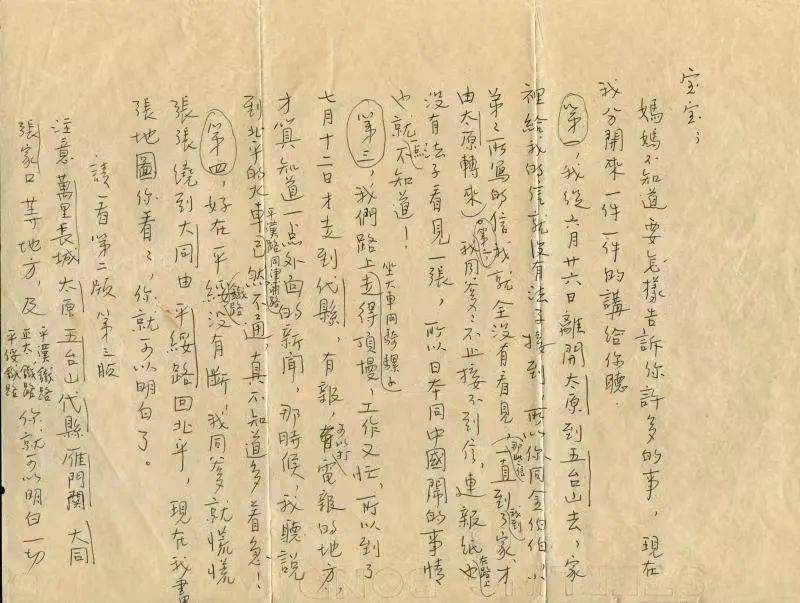 宝宝；
媽媽不知道要怎樣告訴你許多的事，現在
我分開來一件一件的講給你聽.
第一，我從六月廿六日離開太原到五台山去，家
裡給我的信就沒有法子接到，所以你同金伯伯、小
弟弟所寫的信我就全沒有看見（那些信一直到我到了家，才
由太原轉來）第二，我同爹爹不止接不到信，連報紙也在路上
沒有法子看見一張，所以日本同中國鬧的事情
也就一點不知道！
第三，我們路上坐大車同騎騾子走得頂慢，工作又忙，所以到了
七月十二日才走到代縣，有報，可以打電報的地方，
才算知道一点外面的新聞，那時候，我聽說
到北平的火車，平漢路同津浦路已然不通，真不知道多着急！
第四，好在平綏鐵路沒有斷，我同爹爹就慌慌
張張繞到大同由平綏路回北平，現在我畫
張地圖你看看，你就可以明白了。
請看第二版 第三版
注意萬里長城太原五台山代縣雁門關 大同
張家口等地方，及平漢鐵路 正太鐵路 平綏鐵路 你就可以明白一切